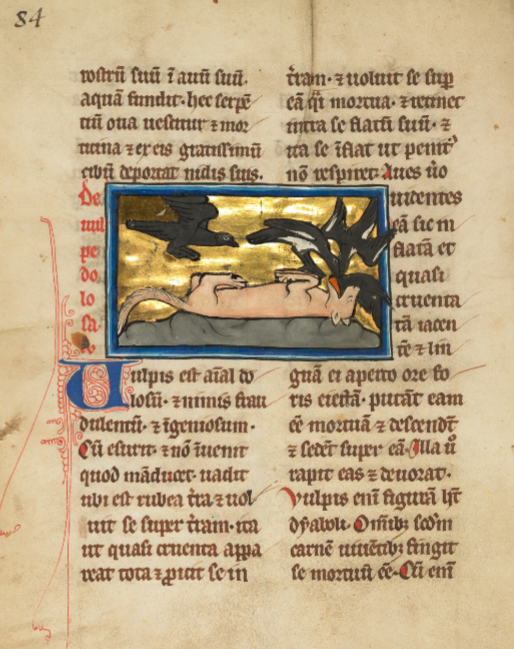 84
rostrū suū ī anū suū.
aquā fundit. hec serpē
tiū oua uescitur ⁊ mor
ticina ⁊ ex eis gratissimū
cibū deportat nidis suis.
De
uul
pe
do
lo
sa
Uulpis est aīal do
losū. ⁊ nimis frau
dulentū. ⁊ īgeniosum.
Cū esurit ⁊ nō īuenit
quod māducet. uadit
ubi est rubea t̄ra ⁊ uol
uit se super t̄ram. ita
ut quasi cruenta appa
reat tota ⁊ ꝓicit se in
t̄ram. ⁊ uoluit se suꝑ
eā q̄i mortua. ⁊ retinet
intra se flatū suū. ⁊
ita se īflat ut penit᷒
nō respiret. Aues ūo
uidentes
eā sic in
flatā et
quasi
cruenta
tā iacen
tē ⁊ lin
guā ei aperto ore fo
ris eiectā. putāt eam
eē mortuā ⁊ descendt̄
⁊ sedēt super eā. Illa ū
rapit eas ⁊ deuorat.
Vulpis enī figurā ht̄
dyaboli. Omībꝫ scdm̄
carnē uiuētibꝫ fingit
se mortuū eē. Cū enī